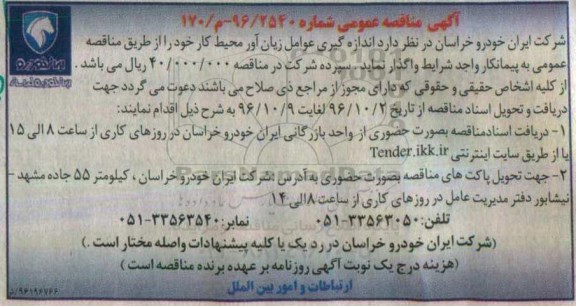 آگهی مناقصه عمومی شماره ۹۶/۲۵۴۰-م/۱۷۰
شرکت ایران خودرو خراسان در نظر دارد اندازه گیری عوامل زیان آور محیط کار خود را از طریق مناقصه
عمومی به پیمانکار واجد شرایط واگذار نماید. سپرده شرکت در مناقصه ۴۰/۰۰۰/۰۰۰ ریال می باشد .
از کلیه اشخاص حقیقی و حقوقی که دارای مجوز از مراجع ذی صلاح می باشند دعوت می گردد جهت
دریافت و تحویل اسناد مناقصه از تاریخ ۹۶/۱۰/۲ لغایت ۹۶/۱۰/۹ به شرح ذیل اقدام نمایند:
۱- دریافت اسنادمناقصه بصورت حضوری از واحد بازرگانی ایران خودرو خراسان در روزهای کاری از ساعت ۸ الی ۱۵
یا از طریق سایت اینترنتی Tender.ikk.ir
۲- جهت تحویل پاکت های مناقصه بصورت حضوری به آدرس :شرکت ایران خودرو خراسان ، کیلومتر ۵۵ جاده مشهد -
نیشابور دفتر مدیریت عامل در روزهای کاری از ساعت ۸ الی ۱۴
تلفن:۳۳۵۶۳۰۵۰-۰۵۱ نمابر:۳۳۵۶۳۵۴۰-۰۵۱
(شرکت ایران خودرو خراسان در رد یک یا کلیه پیشنهادات واصله مختار است .)
(هزینه درج یک نوبت آگهی روزنامه بر عهده برنده مناقصه است )
ارتباطات و امور بین الملل
ایران‌خودرو
۹۶۱۹۶۷۶۶/د